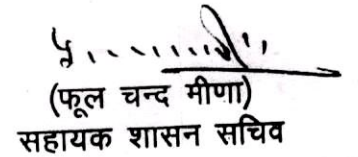 (फूल चन्द मीणा)
सहायक शासन सचिव